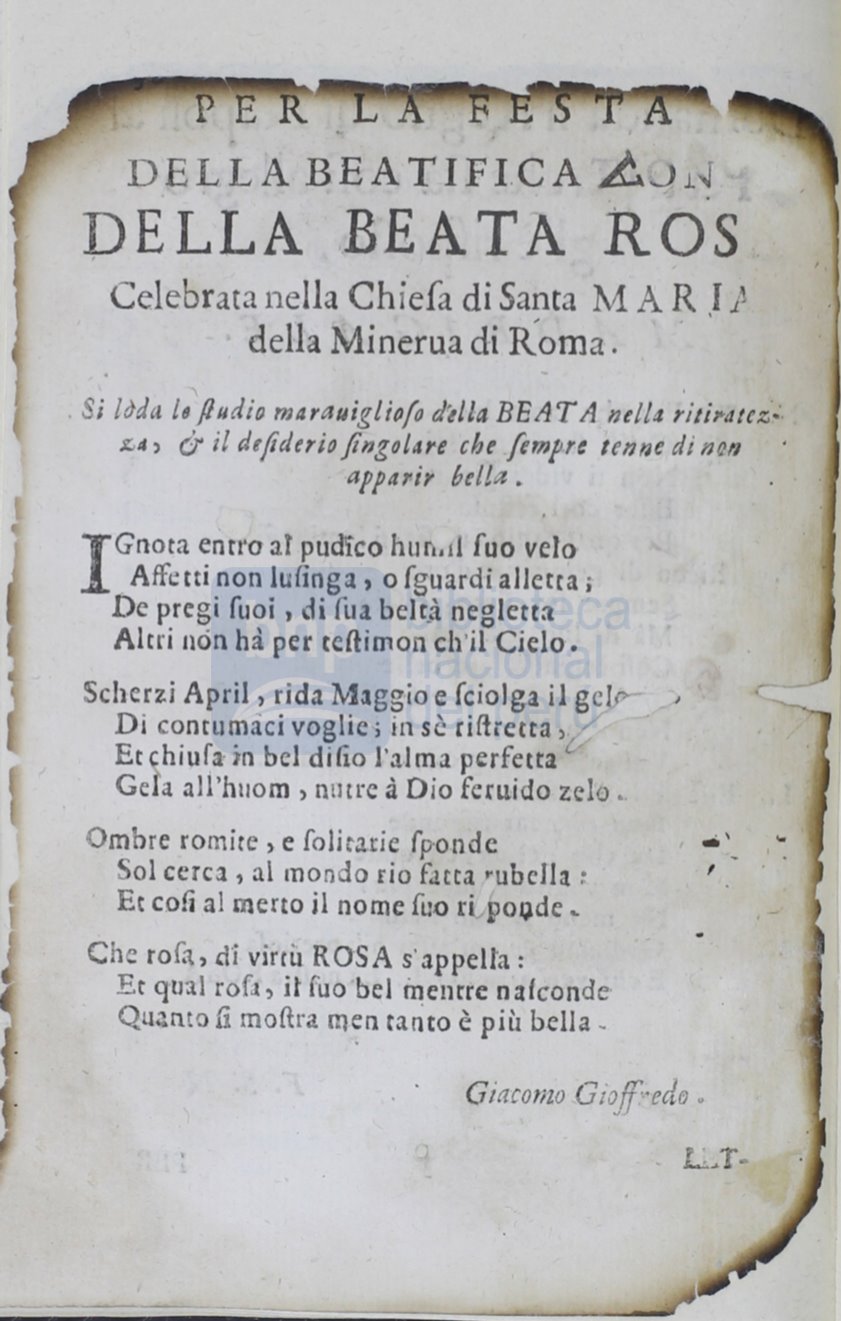 PER LA FESTA
DELLA BEATIFICA
DELLA BEATA ROS
Celebrata nella Chieſa di Santa MARIA
della Minerua di Roma.
Si lòda lo ſtudio marauiglioſo della BEATA nella ritiratez-
za, & il deſiderio ſingolare che ſempre tenne di non
apparir bella.
IGnota entro al pudico humil ſuo velo
Affetti non luſinga, o ſguardi alletta;
De pregi ſuoi, di ſua beltà negletta
Altri non hà per teſtimon ch'il Cielo.
Scherzi April, rida Maggio e ſciolga il gelo
Di contumaci voglie; in sè riſtretta,
Et chiuſa in bel diſio l'alma perfetta
Gela all'huom, nutre à Dio feruido zelo.
Ombre romite, e ſolitarie ſponde
Sol cerca, al mondo rio fatta rubella:
Et coſi al merto il nome ſuo ri ponde.
Che roſa, di virtù ROSA s'appella:
Et qual roſa, il ſuo bel mentre naſconde
Quanto ſi moſtra men tanto è più bella.
Giacomo Gioffredo.
biblioteca
nacional
del perú